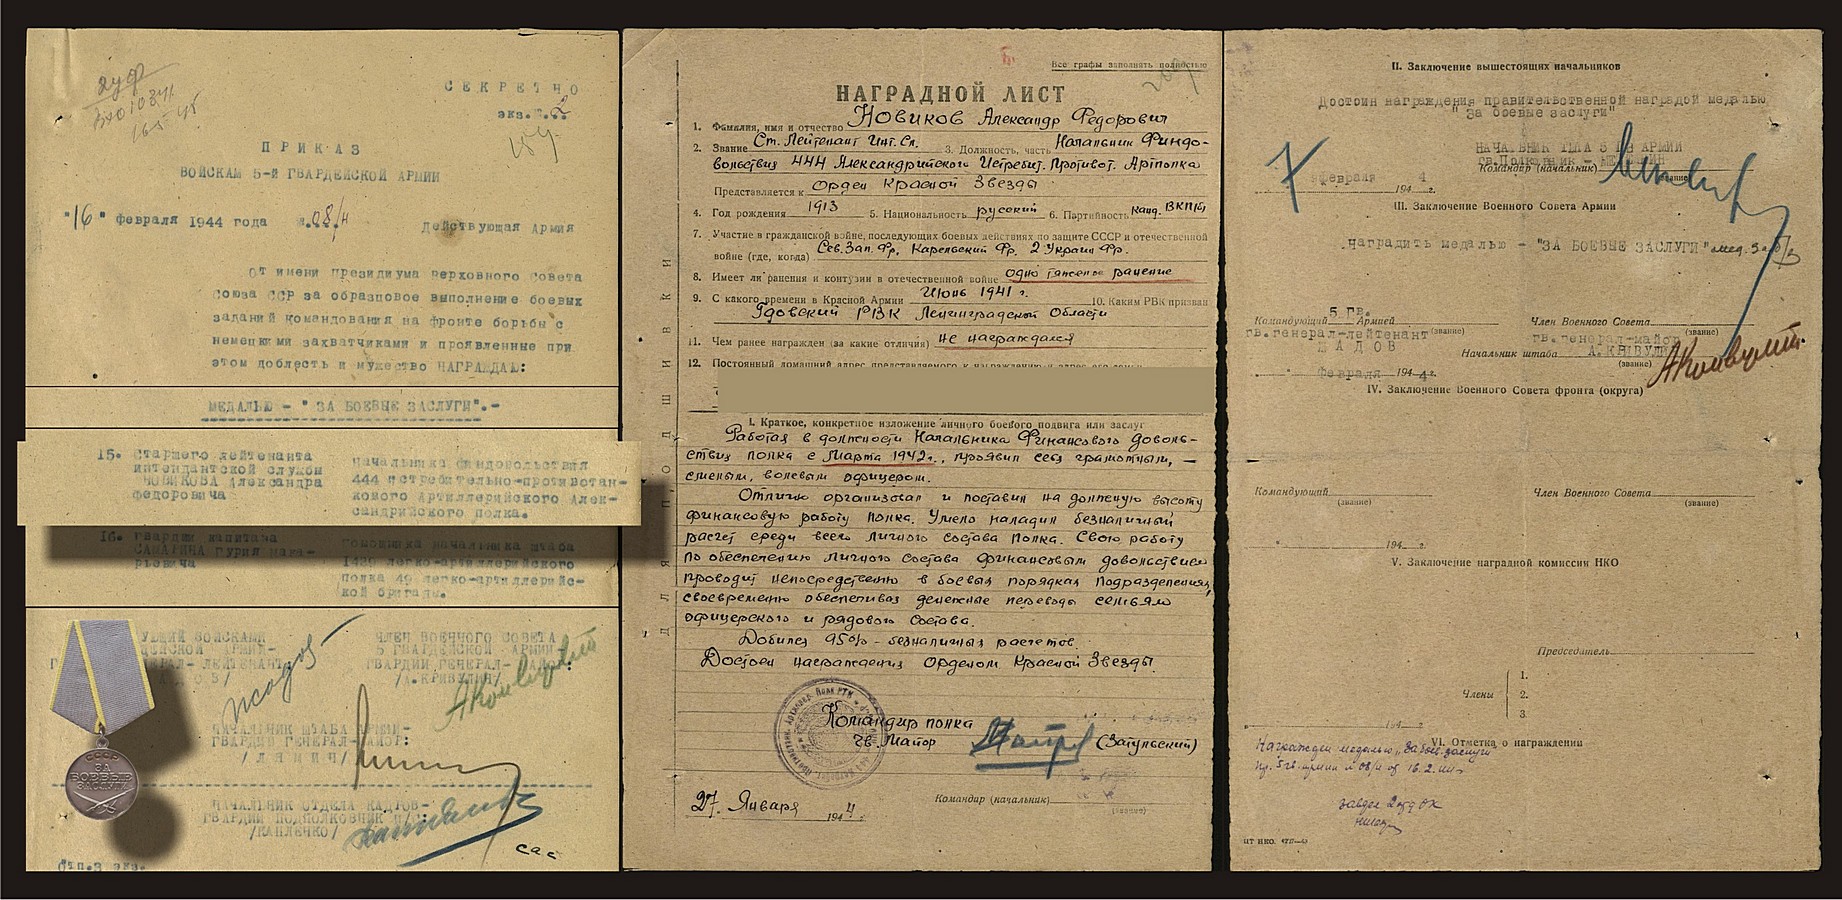 СЕКРЕТНО
экз. 2
ПРИКАЗ
ВОЙСКАМ 5-й ГВАРДЕЙСКОЙ АРМИИ
"16" февраля 1944 года №.08/н Действующая Армия
От имени Президиума Верховного Совета
Союза ССР за образцовое выполнение боевых
заданий командования на фронте борьбы с
немецкими захватчиками и проявленные при
этом доблесть и мужество НАГРАЖДАЮ:
МЕДАЛЬЮ - "ЗА БОЕВЫЕ ЗАСЛУГИ".-
15. Старшего лейтенанта
интендантской службы
НОВИКОВА Александра
Федоровича
начальника финдовольствия
444 истребительно-противотан-
кового Артиллерийского Алек-
сандрийского полка.
16. гвардии капитана
САМАРИНА Гурия Мака-
рьевича
помощника начальника штаба
1439 легко-артиллерийского
полка 49 легко-артиллерийс-
кой бригады.
УЮЩИЙ ВОЙСКАМИ
ДЕЙСКОЙ АРМИИ-
ЛЕЙТЕНАНТ
ЧЛЕН ВОЕННОГО СОВЕТА
5 ГВАРДЕЙСКОЙ АРМИИ
ГВАРДИИ ГЕНЕРАЛ-МАЙОР:
/А.КРИВУЛИН/
НАЧАЛЬНИК ШТАБА АРМИИ-
ГВАРДИИ ГЕНЕРАЛ-МАЙОР:
/ЛЯМИН/
НАЧАЛЬНИК ОТДЕЛА КАДРОВ-
ГВАРДИИ ПОДПОЛКОВНИК
СССР
ЗА
БОЕВЫЕ
ЗАСЛУГИ
Отп.3 экз.
ДЛЯ ПОДШИВКИ
Все графы заполнять полностью
НАГРАДНОЙ ЛИСТ
1. Фамилия, имя и отчество Новиков Александр Федорович
2. Звание Ст. Лейтенант Инт. Сл. 3. Должность, часть Начальник Финдо-
вольствия 444 Александрийского Истребит. Противот. Артполка
Представляется к Орден Красной Звезды
4. Год рождения 1913 5. Национальность русский 6. Партийность канд. ВКП(б)
7. Участие в гражданской войне, последующих боевых действиях по защите СССР и отечественной
войне (где, когда) Сев. Зап. Фр, Карельский Фр, 2 Украин Фр.
8. Имеет ли ранения и контузии в отечественной войне одно тяжелое ранение
9. С какого времени в Красной Армии Июнь 1941 г. 10. Каким РВК призван
Гдовский РВК Ленинградской Области
11. Чем ранее награжден (за какие отличия) не награждался
12. Постоянный домашний адрес представляемого к награждению и адрес его семьи
I. Краткое, конкретное изложение личного боевого подвига или заслуг
Работая в должности Начальника Финансового доволь-
ствия полка с Марта 1942 г., проявил себя грамотным,
смелым, волевым офицером.
Отлично организовал и поставил на должную высоту
финансовую работу полка. Умело наладил безналичный
расчет среди всего личного состава полка. Свою работу
по обеспечению личного состава финансовым довольствием
проводит непосредственно в боевых порядках подразделения,
своевременно обеспечивая денежные переводы семьям
офицерского и рядового состава.
Добился 95% - безналичных расчетов.
Достоен награждения Орденом Красной Звезды
Командир полка
Гв. Майор (Затульский)
27. Января 1944 г.
Командир (начальник)
(звание)
II. Заключение вышестоящих начальников
Достоин награждения правительственной наградой медалью
"За боевые заслуги"
Командир (начальник)
(звание)
7 февраля 1944 г.
III. Заключение Военного Совета Армии
Наградить медалью - "ЗА БОЕВЫЕ ЗАСЛУГИ"
5 Гв.
Командующий Армией
(звание)
гв. генерал-лейтенант
ЖАДОВ
Член Военного Совета
(звание)
гв. генерал-майор
Начальник штаба А. КРИВУЛИН
(звание)
" " февраля 1944 г.
IV. Заключение Военного Совета фронта (округа)
Командующий
(звание)
Член Военного Совета
(звание)
" " 194 г.
V. Заключение наградной комиссии НКО
Председатель
Члены
1.
2.
3
194 г.
VI. Отметка о награждении
Награжден медалью "За боев. заслуги
пр. 5 гв. армии № 08/н от 16.2.44 г.
ЦТ НКО.